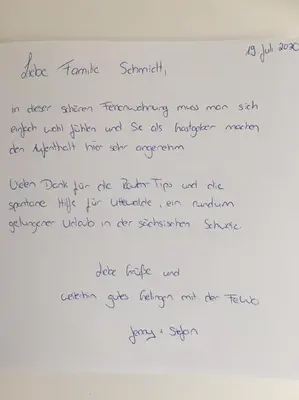 19 Juli 2020
Liebe Familie Schmidt,
in dieser schönen Ferienwohnung muss man sich
einfach wohl fühlen und Sie als Gastgeber machen
den Aufenthalt hier sehr angenehm
Vielen Dank für die Tipps und die
spontane Hilfe für, ein rundum
gelungener Urlaub in der sächsischen Schweiz.
Liebe Grüße und
weiterhin gutes Gelingen mit der FeWo
Jenny + Stefan